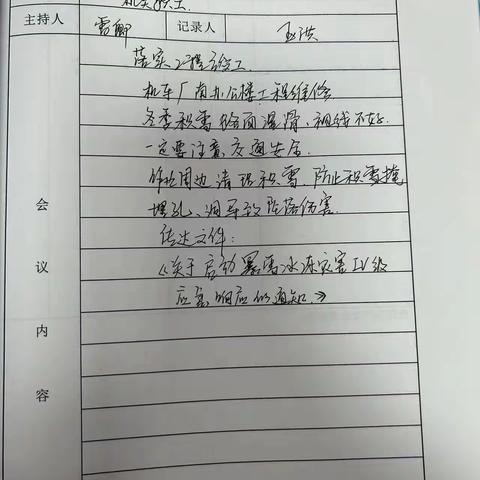 主持人 记录人 王洪
落实
机车厂南办公楼工程维修
冬季积雪路面湿滑、视线不好.
一定要注意交通安全.
周边清理积雪,防止积雪掩
埋孔、洞导致跌落伤害.
传达文件:
《关于启动暴雪冰冻灾害IV级
应急响应的通知.》
会议内容